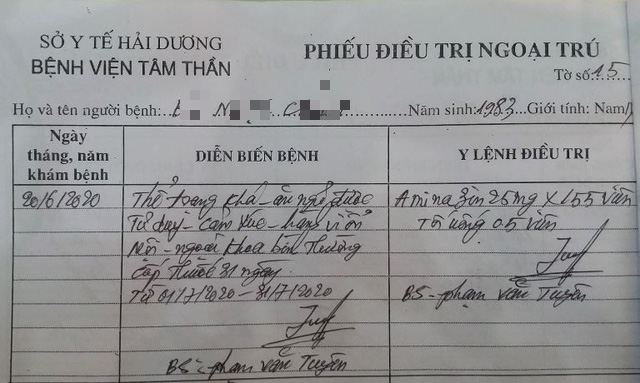 SỞ Y TẾ HẢI DƯƠNG
BỆNH VIỆN TÂM THẦN
PHIẾU ĐIỀU TRỊ NGOẠI TRÚ
Tờ số:15
Họ và tên người bệnh: Năm sinh:1983 Giới tính: Nam/
Ngày tháng, năm khám bệnh
DIỄN BIẾN BỆNH
Y LỆNH ĐIỀU TRỊ
20/6/2020
Thể trạng khá - ăn ngủ được
Tư duy - cảm xúc - hành vi ổn
Nội - ngoại khoa bình thường
Cấp thuốc 31 ngày
Từ 01/7/2020 - 31/7/2020
BS - phạm văn Tuyên
Aminazin 25mg x 155 viên
Tối uống 05 viên
BS - phạm văn Tuyên